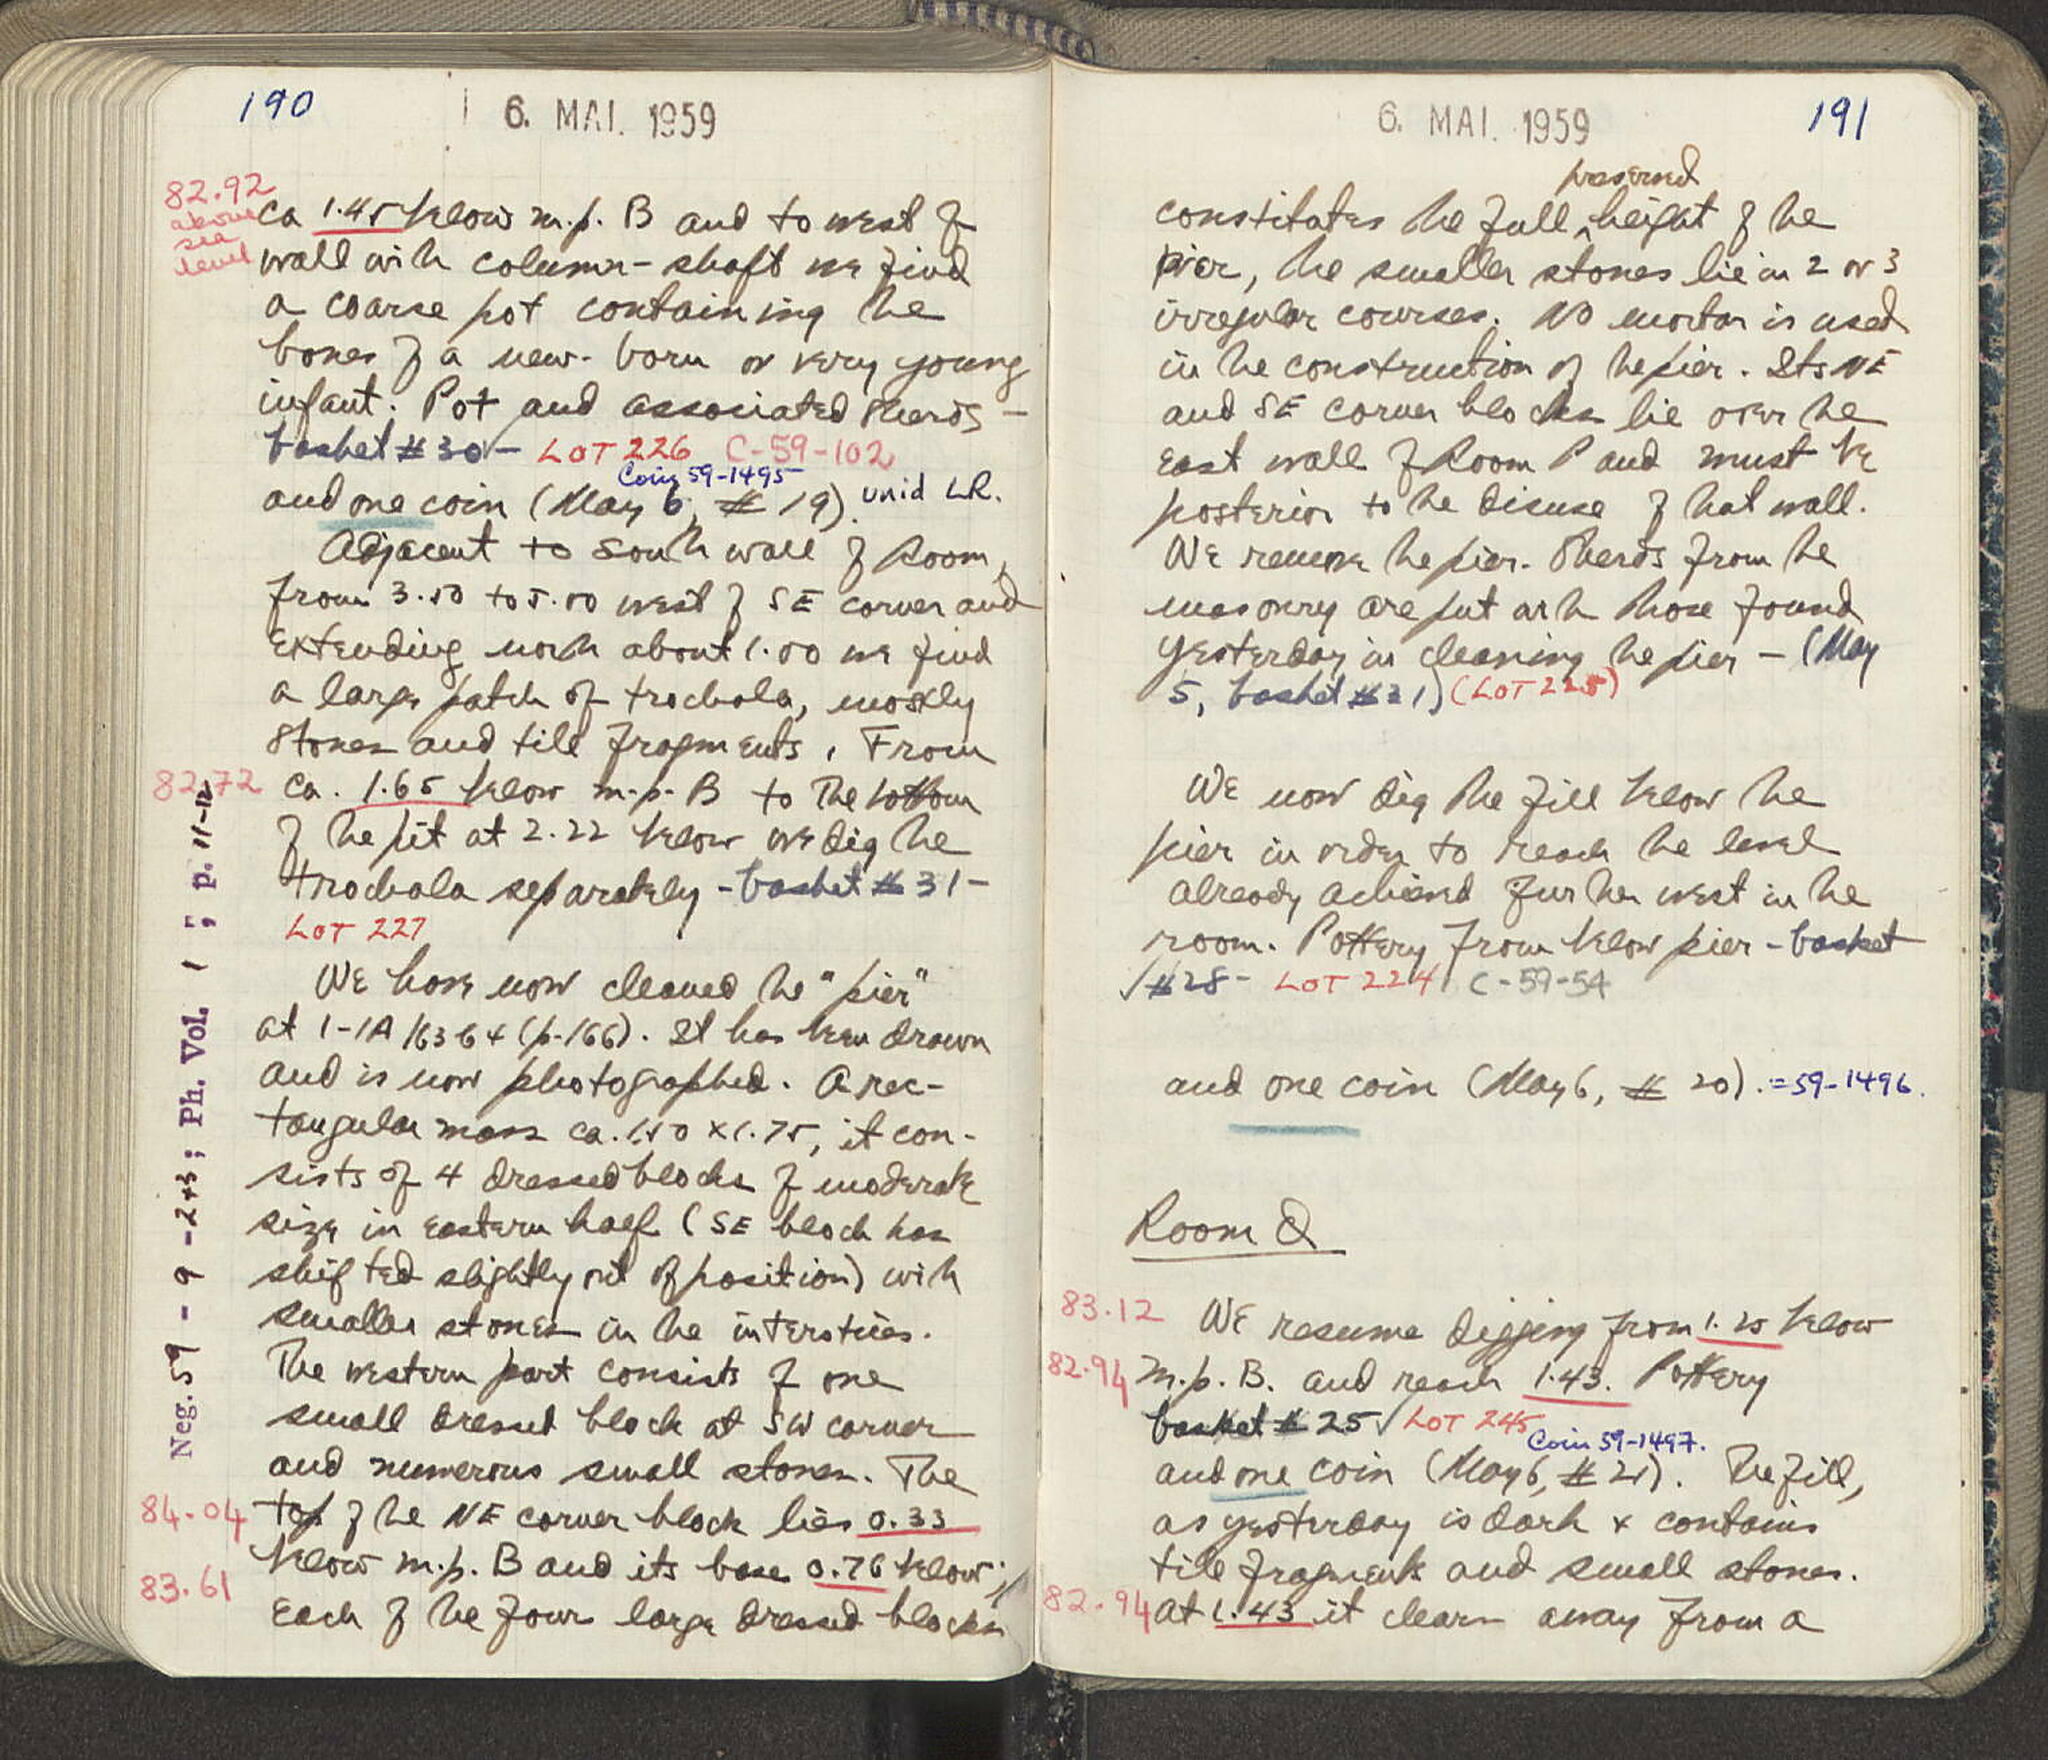 190
6. MAI. 1959
82.92
above
sea
level
ca 1.45 below m.p. B and to west of
wall with column-shaft we find
a coarse pot containing the
bones of a new-born or very young
infant. Pot and associated sherds –
basket # 30 – LOT 226 C-59-102
Coin 59-1495
and one coin (May 6, # 19). unid LR.
Adjacent to south wall of Room,
from 3.50 to 5.00 west of SE corner and
extending north about 1.00 we find
a large patch of trochala, mostly
stones and tile fragments. From
82.72
ca. 1.65 below m.p. B to the bottom
of the pit at 2.22 below we dig the
trochala separately – basket # 31 –
LOT 227
We have now cleaned the "pier"
at 1-1A/63 64 (p. 166). It has been drawn
and is now photographed. A rec-
tangular mass ca. 1.50 x 1.75, it con-
sists of 4 dressed blocks of moderate
size in eastern half (SE block has
shifted slightly out of position) with
smaller stones in the interstices.
The western part consists of one
small dressed block at SW corner
and numerous small stones. The
84.04
top of the NE corner block lies 0.33
below m.p. B and its base 0.76 below;
83.61
Each of the four large dressed blocks
Neg. 59 - 9 - 2+3; Ph. Vol. 1; p. 11-12
6. MAI. 1959
191
preserved
constitutes the full ^ height of the
pier, the smaller stones lie in 2 or 3
irregular courses. No mortar is used
in the construction of the pier. Its NE
and SE corner blocks lie over the
east wall of Room P and must be
posterior to the disuse of that wall.
We remove the pier. Sherds from the
masonry are put with those found
yesterday in cleaning the pier – (May
5, basket # 31) (LOT 225)
We now dig the fill below the
pier in order to reach the level
already achieved further west in the
room. Pottery from below pier – basket
√ # 28 – LOT 224 C-59-54
and one coin (May 6, # 20). = 59-1496.
Room Q
83.12
We resume digging from 1.25 below
82.94
m.p. B. and reach 1.43. Pottery
basket # 25 √ LOT 245
Coin 59-1497.
and one coin (May 6, # 21). The fill,
as yesterday is dark + contains
tile fragments and small stones.
82.94
At 1.43 it clears away from a